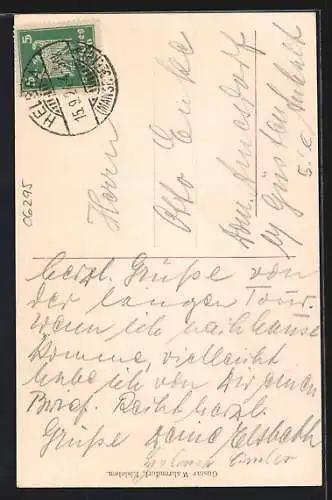 HELBRA
(MANSF.
15.9.2
5
Herrn
Otto
Dom. Amesdorf
b/ Güsten
i. Anhalt
herzl. Grüße von
der langen Tour.
Wenn ich nachhause
komme, vielleicht
habe ich von Dir einen
Brief. Recht herzl.
Grüße Deine Elsbeth
06295
Gustav Wahrendorf, Eisleben.